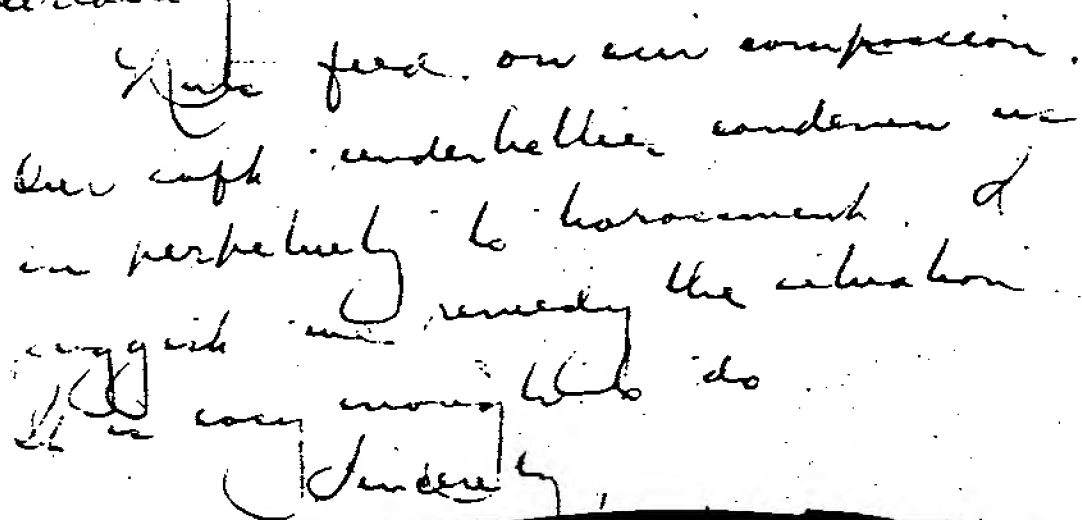 feed on our compassion.
Our soft underbellies condemn us
in perpetuity to harassment. I
suggest we remedy the situation.
It is easy enough to do.
Sincerely,